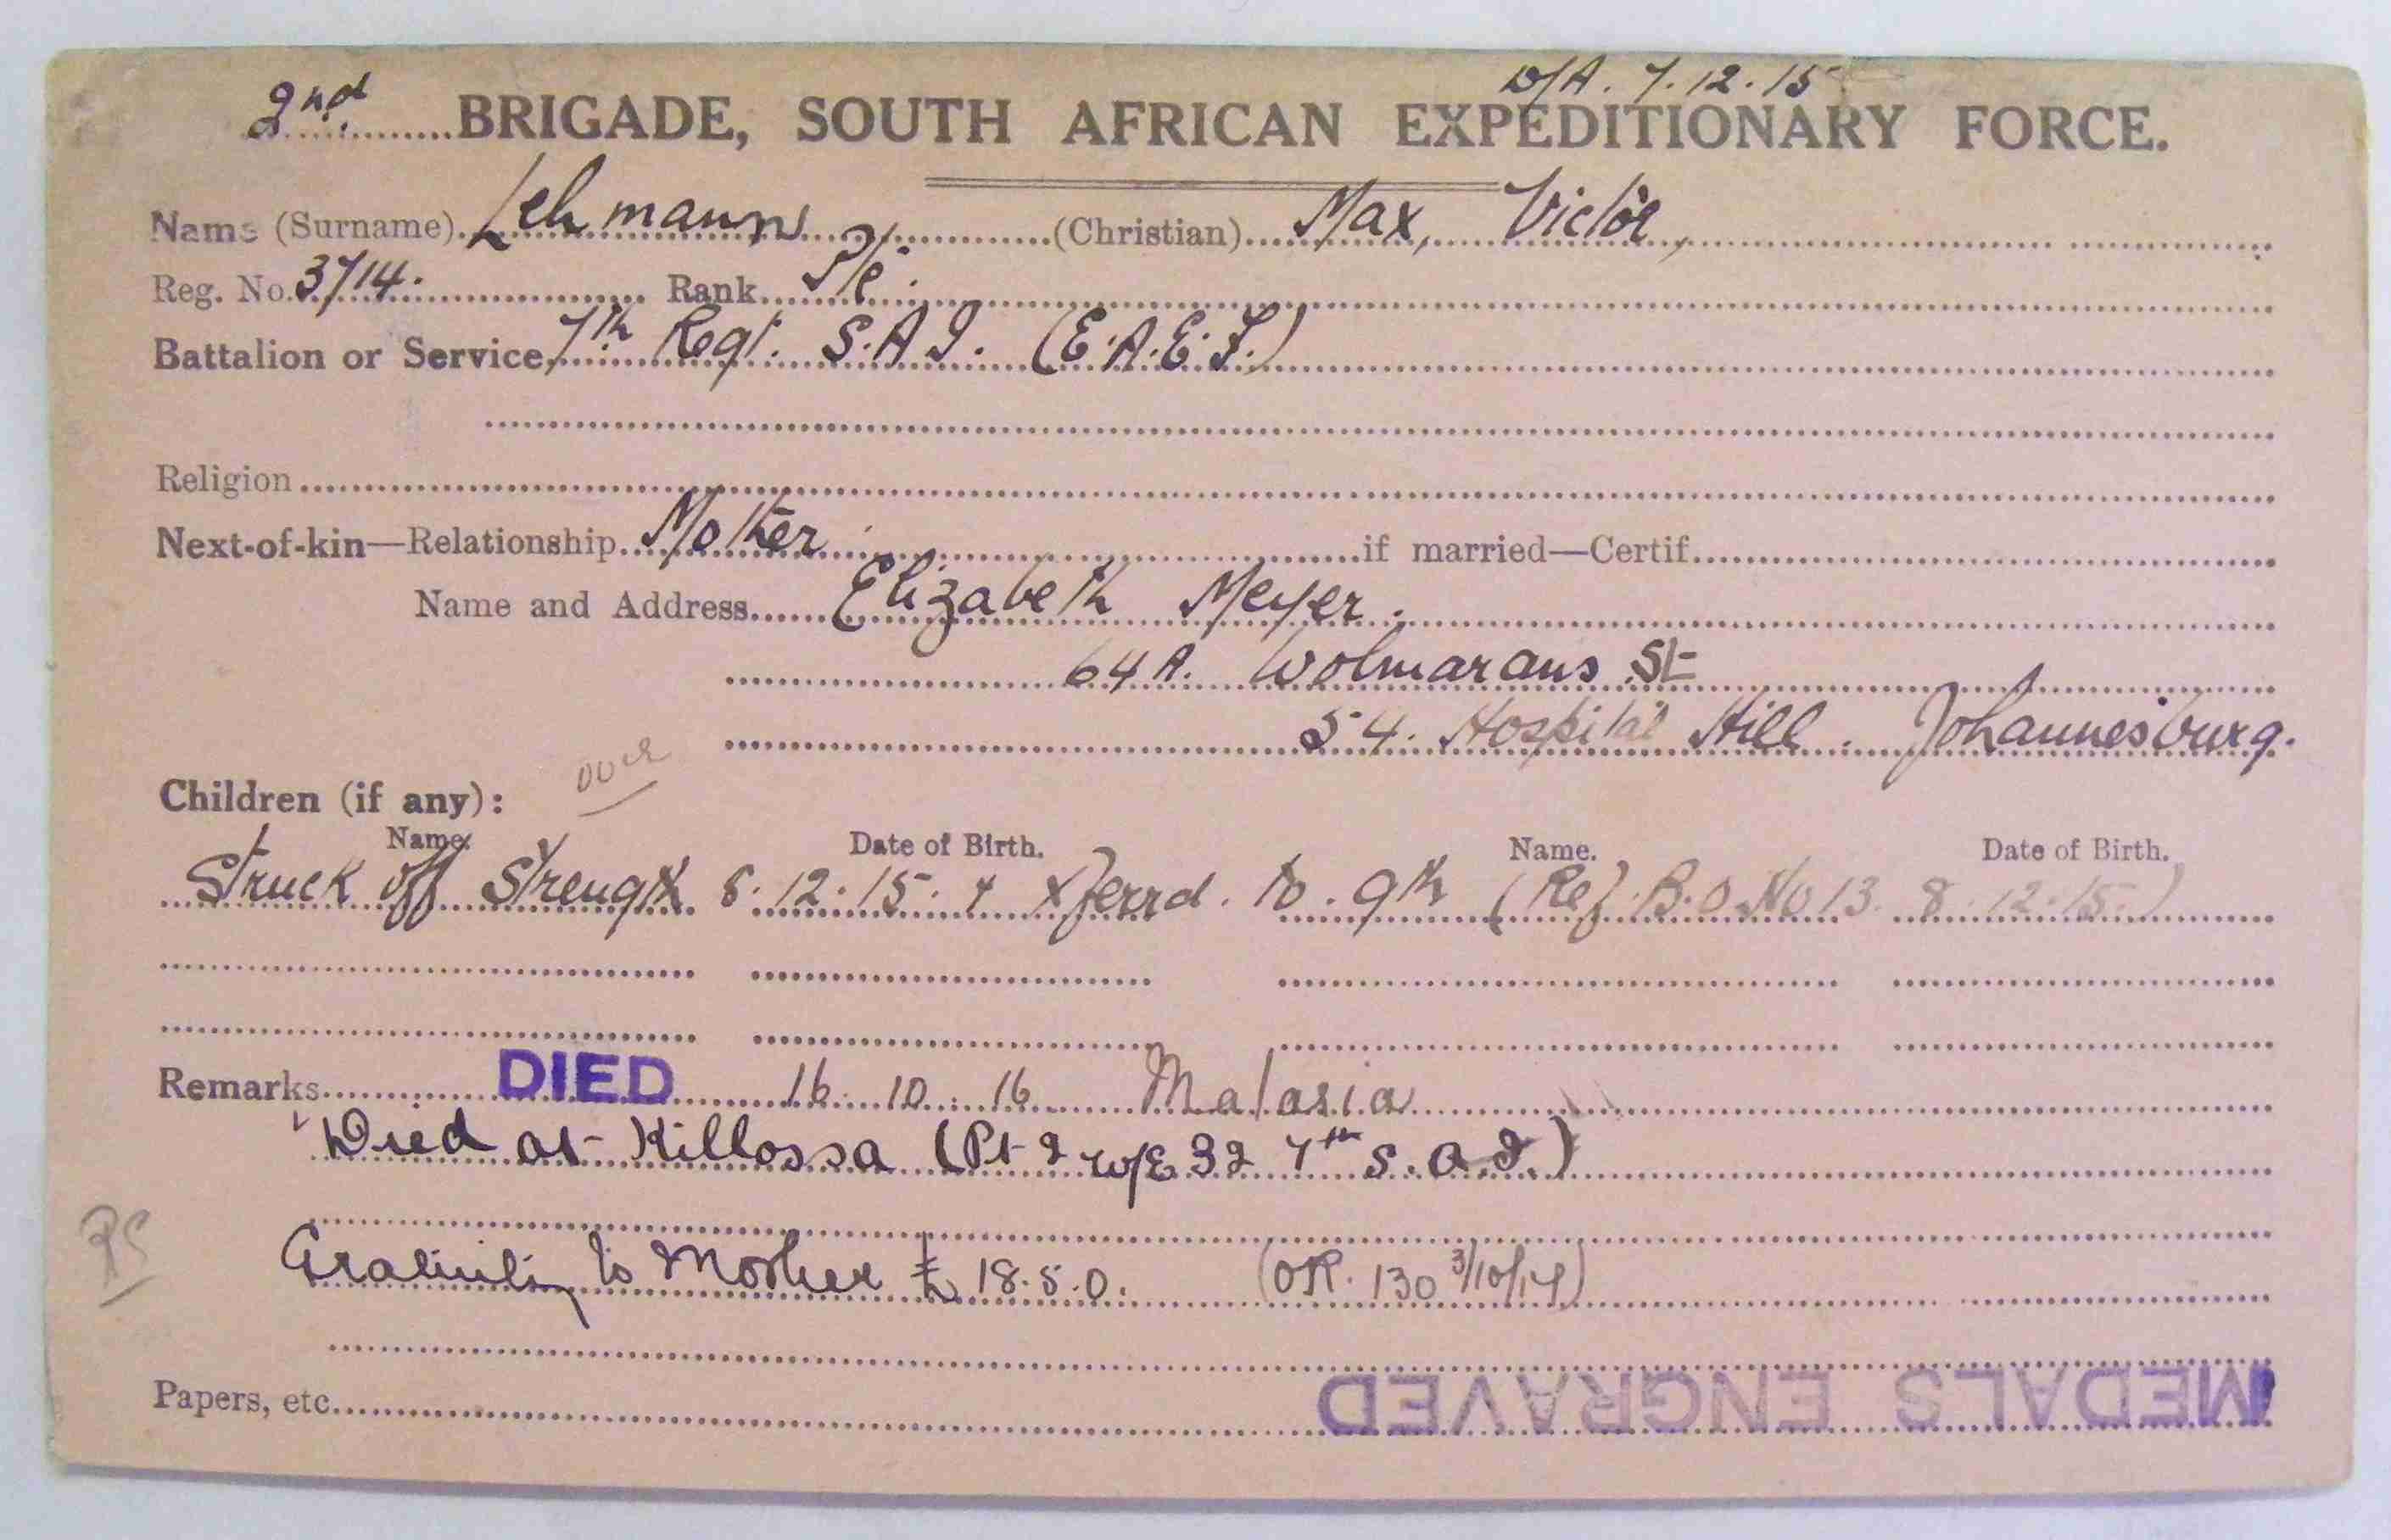 D/A. 7.12.15
2nd BRIGADE, SOUTH AFRICAN EXPEDITIONARY FORCE.
Name (Surname) Lehmann (Christian) Max, Victor,
Reg. No. 3714. Rank Pte.
Battalion or Service, 7th Regt. S.A.I. (E.A.E.F.)
Religion
Next-of-kin—Relationship Mother if married—Certif.
Name and Address Elizabeth Meyer.
64A. Wolmarans St
54. Hospital Hill. Johannesburg.
over
Children (if any):
Name. Date of Birth. Name. Date of Birth.
Struck off Strength 8.12.15. + xferrd. to 9th (Ref. B.O. No 13. 8.12.15.)
Remarks DIED 16.10.16 Malaria
Died at Killossa (Pt 2 w/E 32 7th S.A.I.)
Gratuity to Mother £ 18.5.0. (OR. 130 3/10/17)
Papers, etc.
MEDALS ENGRAVED